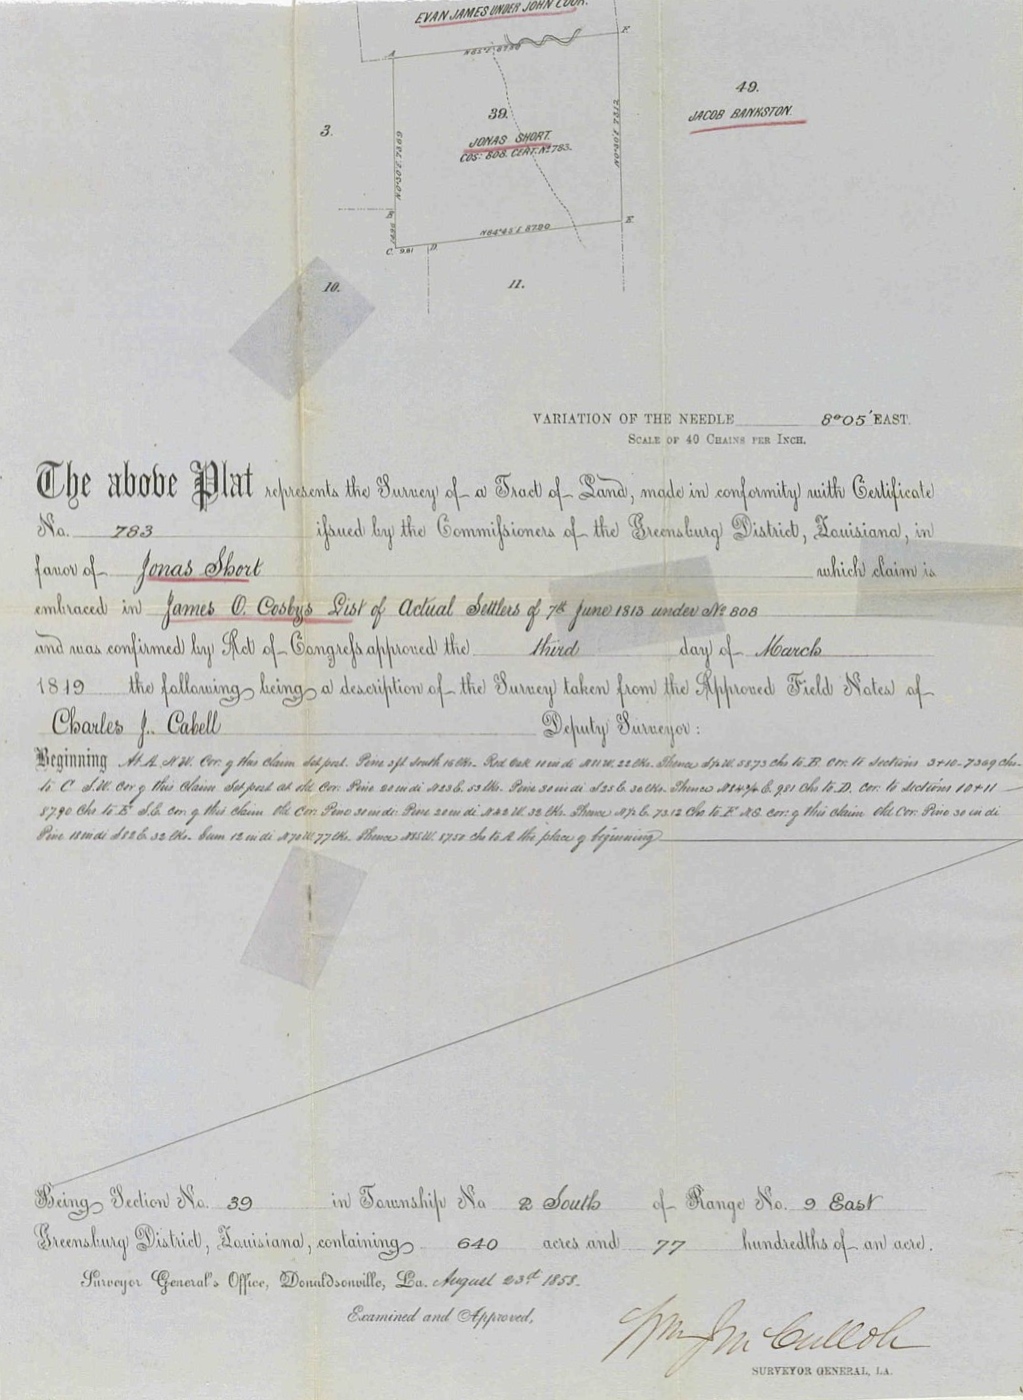 EVAN JAMES UNDER JOHN COOK.
A
F
49.
JACOB BANKSTON.
3.
39.
JONAS SHORT.
COS: 808. CERT. No 783.
B
E
N 84°45' E 87.90
C 9.81 D.
10.
11.
VARIATION OF THE NEEDLE 8°05' EAST.
SCALE OF 40 CHAINS PER INCH.
The above Plat represents the Survey of a Tract of Land, made in conformity with Certificate
No. 783 issued by the Commissioners of the Greensburg District, Louisiana, in
favor of Jonas Short which claim is
embraced in James O. Cosby's List of Actual Settlers of 7th June 1813 under No 808
and was confirmed by Act of Congress approved the third day of March
1819 the following being a description of the Survey taken from the Approved Field Notes of
Charles J. Cabell Deputy Surveyor:
Beginning At A N.W. Cor. of this claim Set post. Pine 3 ft South 16 lks. Red Oak 11 in di N 11 W. 22 lks. Thence W. 58 73 chs to B. Cor. to Sections 3 + 10 - 73 69 chs
to C S.W. Cor of this Claim Set post at old Cor. Pine 20 in di N 23 E. 53 lks. Pine 30 in di S 25 E. 30 lks. Thence E. 9 81 Chs to D. Cor. to Sections 10 + 11
87 90 Chs to E S.E. Cor. of this claim Old Cor. Pine 31 in di: Pine 20 in di N 42 W. 32 lks. Thence E. 73 12 Chs to F N.E. cor. of this claim Old Cor. Pine 30 in di
Pine 18 in di S 82 E. 32 lks. Gum 12 in di N 70 W. 77 lks. Thence W. 87 50 chs to A the place of beginning
Being Section No. 39 in Township No 2 South of Range No. 9 East
Greensburg District, Louisiana, containing 640 acres and 77 hundredths of an acre.
Surveyor General's Office, Donaldsonville, La. August 23d 1858.
Examined and Approved,
Wm J McCulloh
SURVEYOR GENERAL, LA.